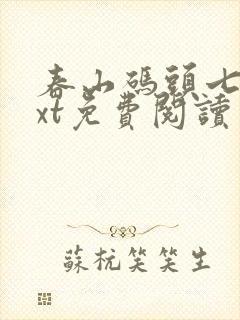 春山碼頭七
xt免費閱讀
蘇杭笑笑生